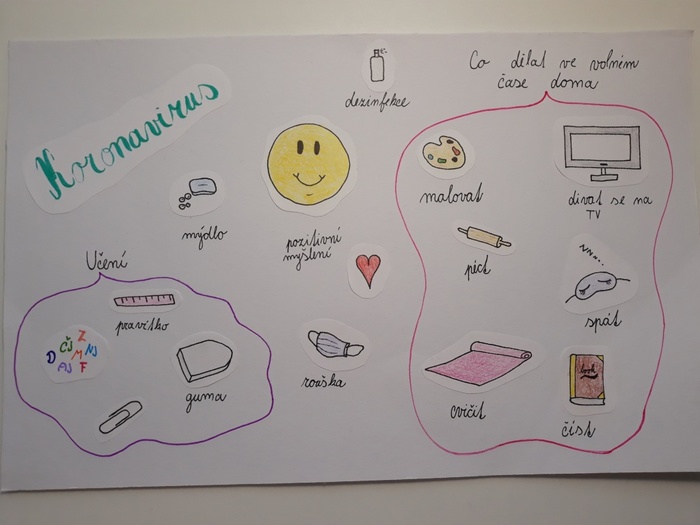 Koronavirus
dezinfekce
Co dělat ve volném
čase doma
malovat
dívat se na
TV
mýdlo
pozitivní
myšlení
péct
zzz...
spát
Učení
pravítko
Z
ČJ
D
M
NJ
AJ
F
guma
rouška
cvičit
book
číst